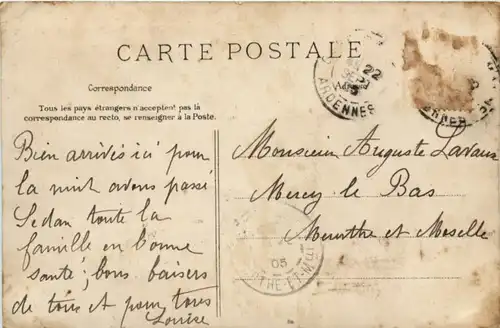 CARTE POSTALE
Correspondance
Tous les pays étrangers n'acceptent pas la
correspondance au recto, se renseigner à la Poste.
22
ARDENNES
Bien arrivés ici pour
la nuit avons passé
Sedan toute la
famille en bonne
santé; bons baisers
de tous et pour tous
Louise
Monsieur Auguste
Mercy le Bas
Meurthe et Moselle
05